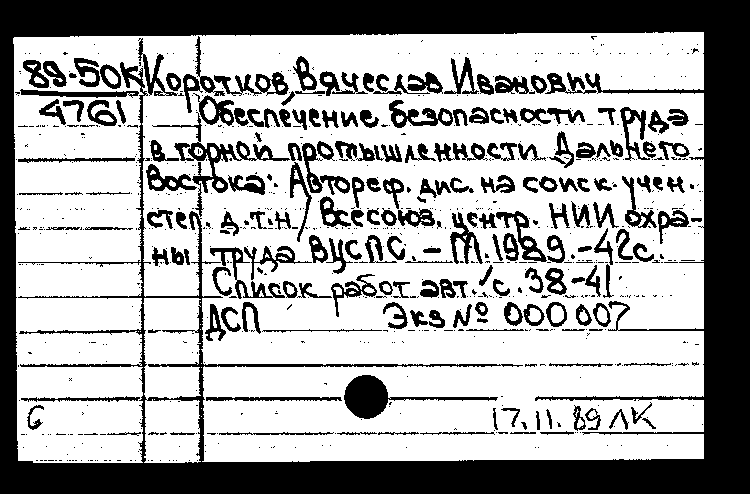 89-50К Коротков, Вячеслав Иванович
4761 Обеспечение безопасности труда
в горной промышленности Дальнего
Востока: Автореф. дис. на соиск. учен.
степ. д.т.н / Всесоюз. центр. НИИ охра-
ны труда ВЦСПС. – М. 1989. – 42с.
Список работ авт.: с. 38-41.
ДСП Экз № 000007
6 17.11.89 ЛК